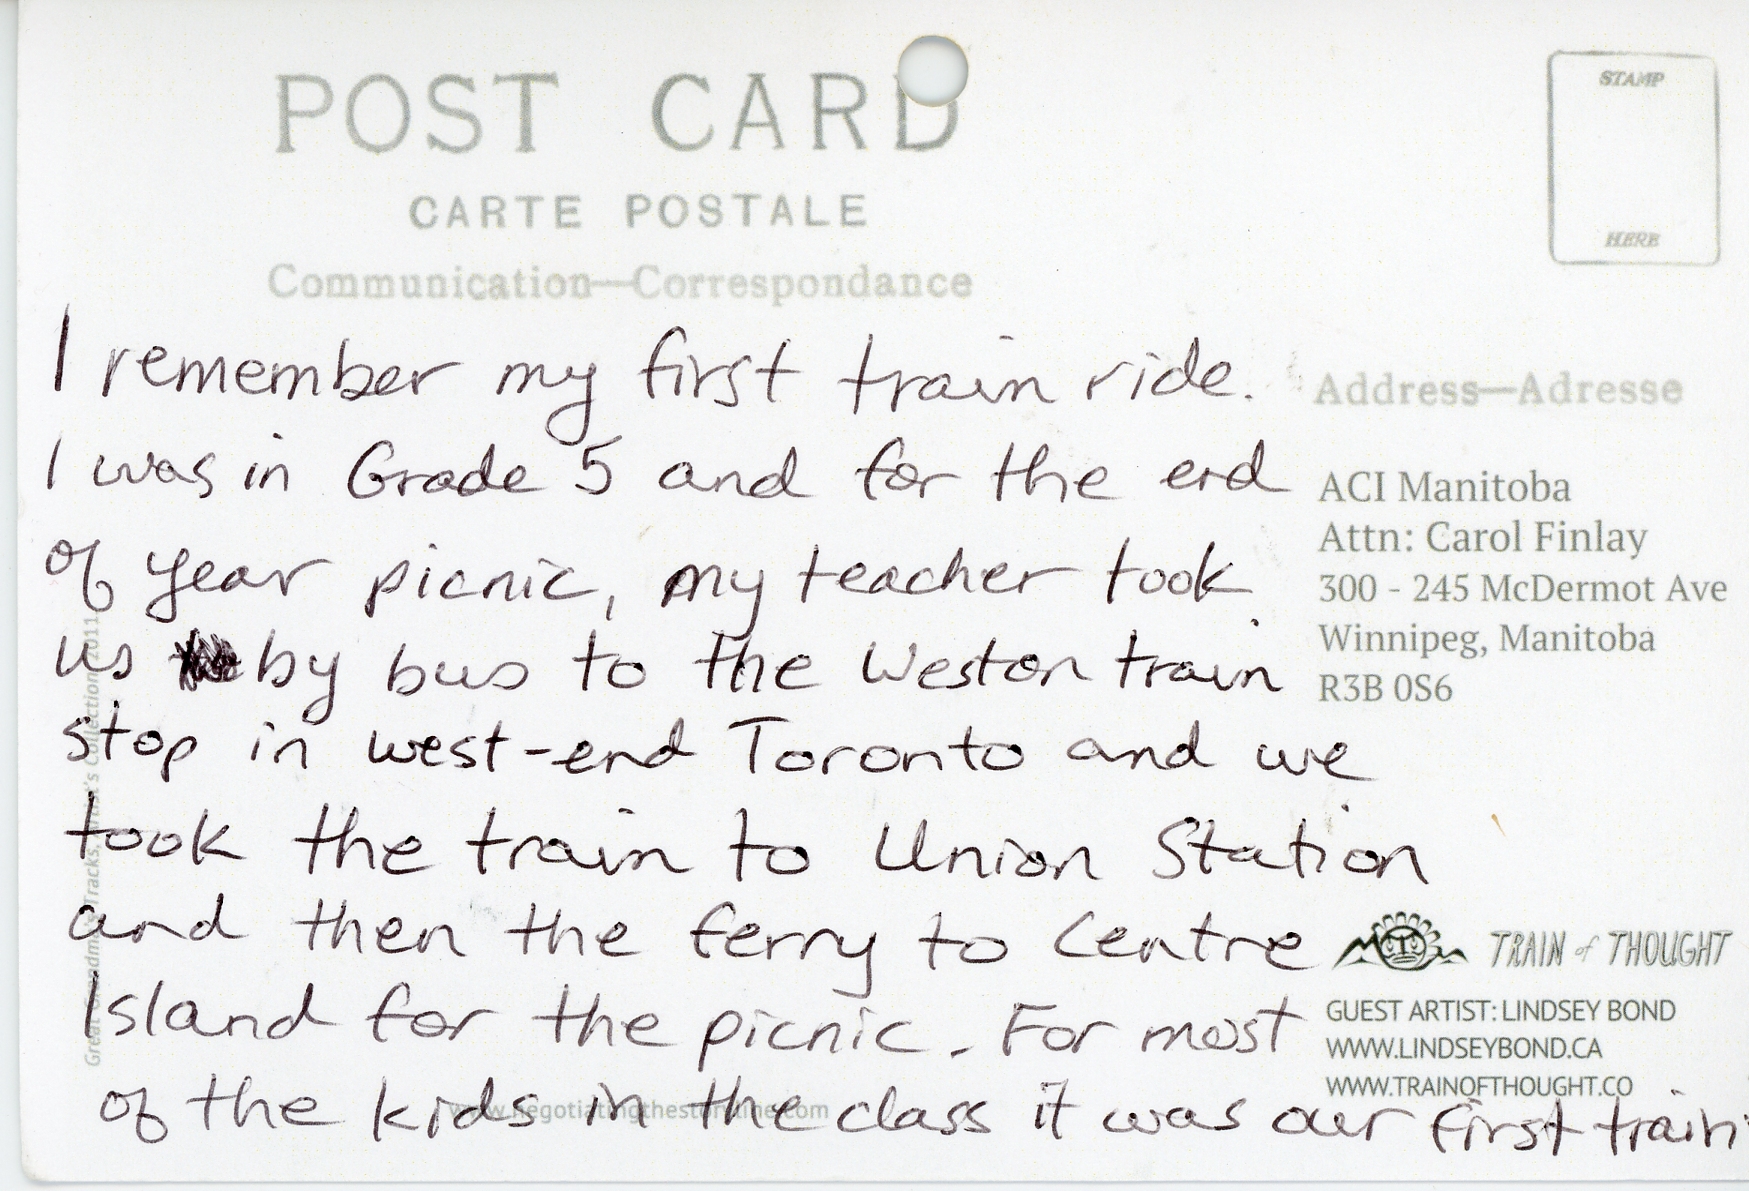 POST CARD
CARTE POSTALE
Communication—Correspondance
STAMP
HERE
I remember my first train ride.
I was in Grade 5 and for the end
of year picnic, my teacher took
us by bus to the Weston train
stop in west-end Toronto and we
took the train to Union Station
and then the ferry to Centre
Island for the picnic. For most
of the kids in the class it was our first train
Address—Adresse
ACI Manitoba
Attn: Carol Finlay
300 - 245 McDermot Ave
Winnipeg, Manitoba
R3B 0S6
TRAIN of THOUGHT
GUEST ARTIST: LINDSEY BOND
WWW.LINDSEYBOND.CA
WWW.TRAINOFTHOUGHT.CO
www.negotiatingthestoryline.com
Tracks, Collection 2011